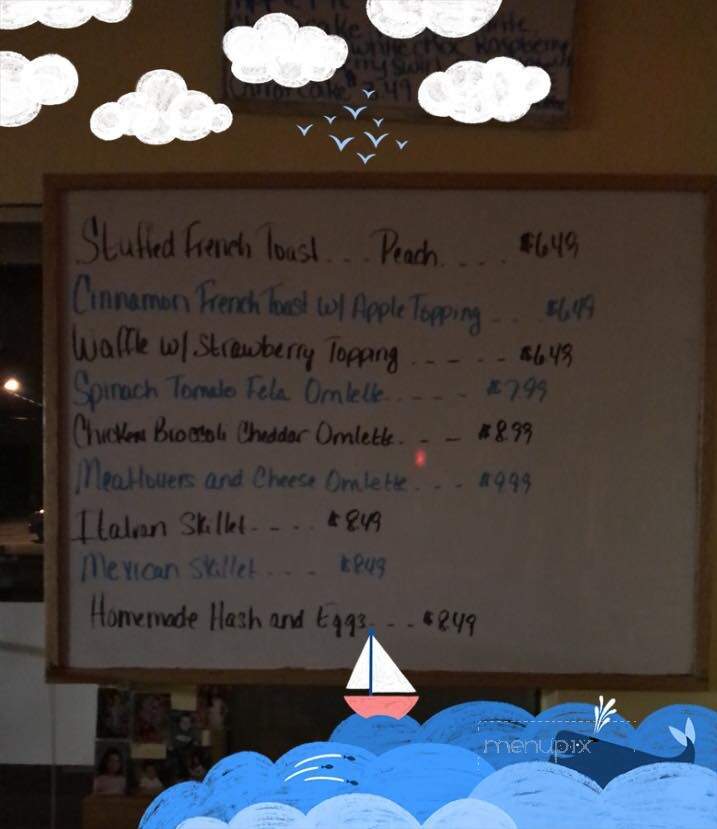 White Choc Raspberry
Carrot Cake 7.49
Stuffed French Toast... Peach.... $6.49
Cinnamon French Toast w/ Apple Topping... $6.49
Waffle w/ Strawberry Topping..--- $6.49
Spinach Tomato Feta Omlette.---- $7.99
Chicken Broccoli Cheddar Omlette.-- $8.99
Meatlovers and Cheese Omlette... $9.99
Italian Skillet---. $8.49
Mexican Skillet.... $8.49
Homemade Hash and Eggs...- $8.49
menupix